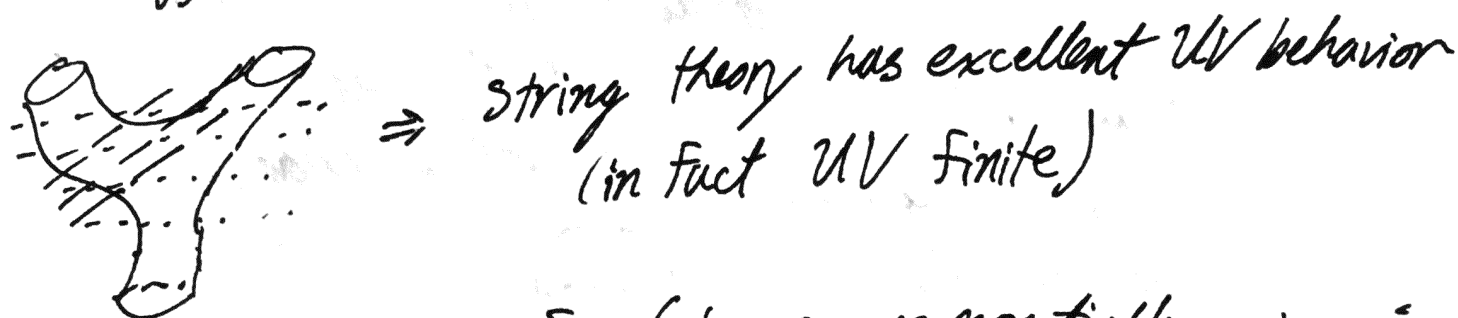 ⇒ string theory has excellent UV behavior
(in fact UV finite)